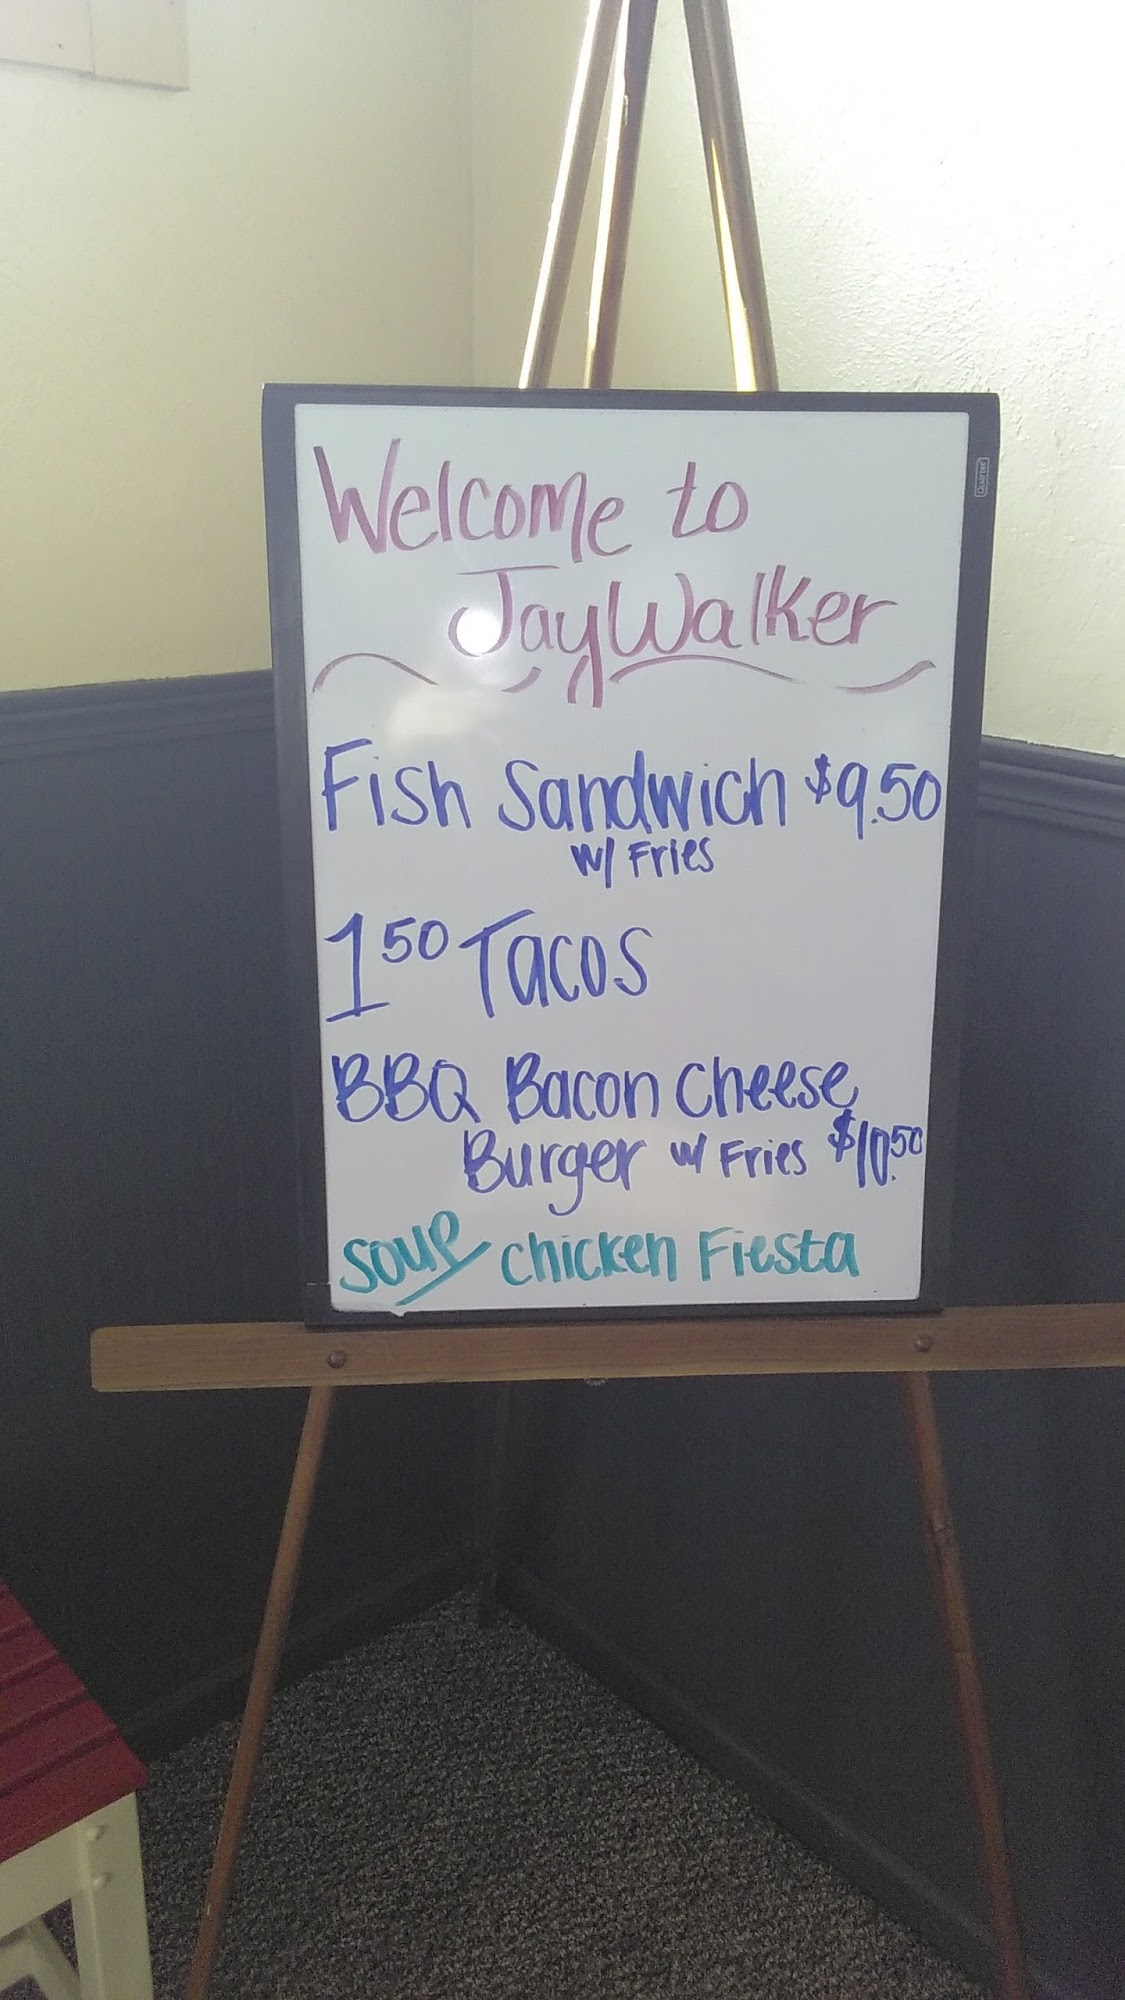 Welcome to
JayWalker
Fish Sandwich $9.50
w/ Fries
1 50 Tacos
BBQ Bacon Cheese
Burger w/ Fries $10.50
Soup Chicken Fiesta
Quartet